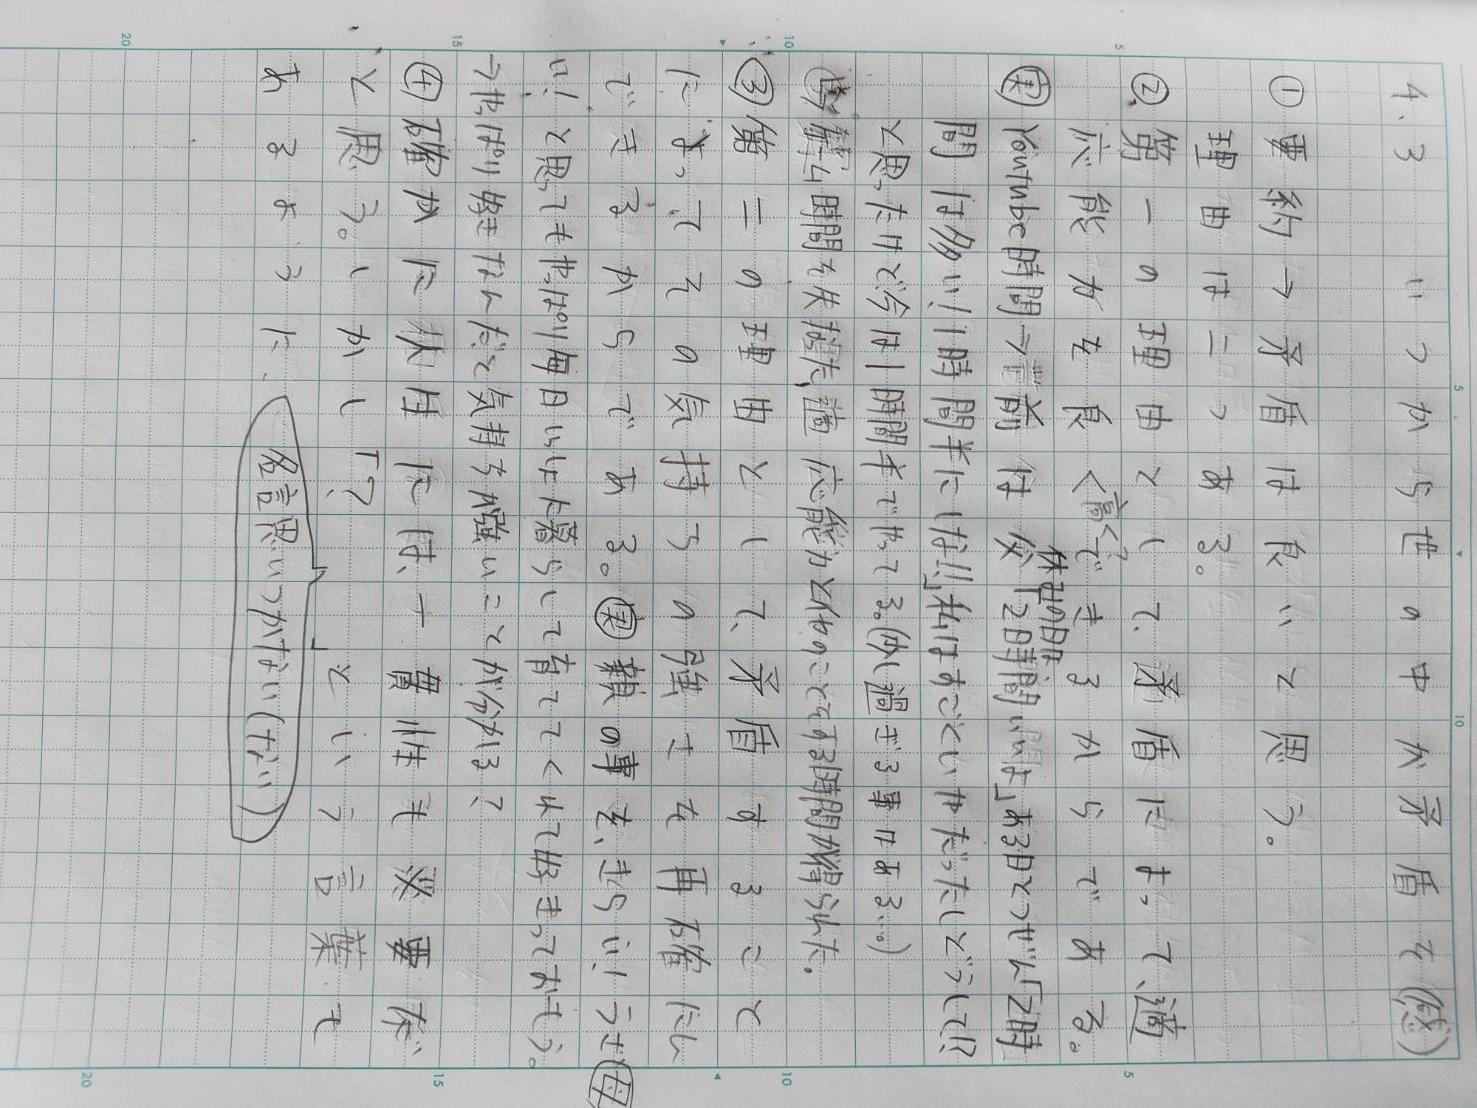 4.3 いつからせの中が矛盾を(感)
① 要約→矛盾は良いと思う。
理由は二つある。
② 第一の理由として、矛盾によって、適
応能力を良く(高く?)できるからである。
休みの日は
実 Youtube時間→前は父「2時間いいよ」ある日とつぜん「2時
間は多い!1時間半にしな!!」私はすごくいやだったしどうして!?
と思ったけど今は1時間半でやってる。(少し過ぎる事はある…。)
時間を失った、適応能力と他のことをする時間が得られた。
③ 第二の理由として、矛盾すること
によってその気持ちの強さを再確にん
できるからである。実 親の事を、きらい!うざ 母
い!と思ってもやっぱり毎日いっしょに暮らして育ててくれて好きっておもう。
→やっぱり好きなんだと気持ちが強いことが分かる?
④ 確かに秋田には、一貫性も必要だ
と思う。しかし「?
」という言葉も
あるように、
名言思いつかない(ない)
5
10
15
20
5
10
5
10
15
20